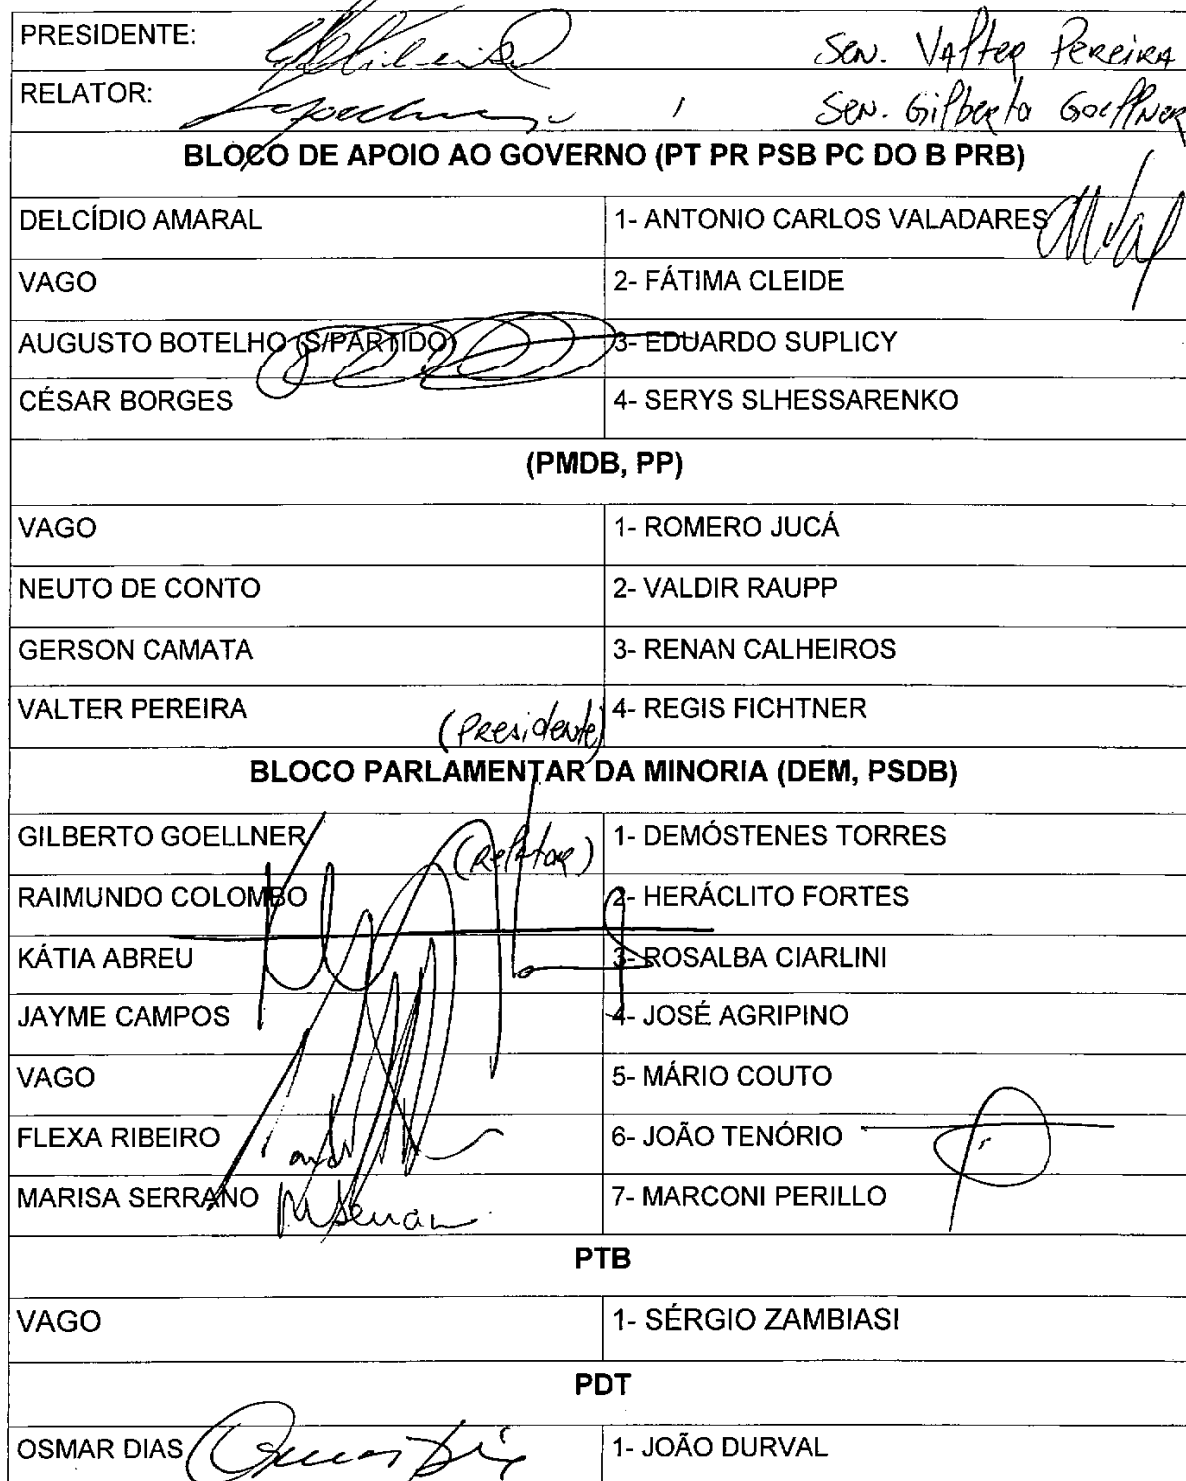 PRESIDENTE: Sen. Valter Pereira
RELATOR: Sen. Gilberto Goellner
BLOCO DE APOIO AO GOVERNO (PT PR PSB PC DO B PRB)
DELCÍDIO AMARAL 1- ANTONIO CARLOS VALADARES
VAGO 2- FÁTIMA CLEIDE
AUGUSTO BOTELHO (S/PARTIDO) 3- EDUARDO SUPLICY
CÉSAR BORGES 4- SERYS SLHESSARENKO
(PMDB, PP)
VAGO 1- ROMERO JUCÁ
NEUTO DE CONTO 2- VALDIR RAUPP
GERSON CAMATA 3- RENAN CALHEIROS
VALTER PEREIRA (Presidente) 4- REGIS FICHTNER
BLOCO PARLAMENTAR DA MINORIA (DEM, PSDB)
GILBERTO GOELLNER (Relator) 1- DEMÓSTENES TORRES
RAIMUNDO COLOMBO 2- HERÁCLITO FORTES
KÁTIA ABREU 3- ROSALBA CIARLINI
JAYME CAMPOS 4- JOSÉ AGRIPINO
VAGO 5- MÁRIO COUTO
FLEXA RIBEIRO 6- JOÃO TENÓRIO
MARISA SERRANO 7- MARCONI PERILLO
PTB
VAGO 1- SÉRGIO ZAMBIASI
PDT
OSMAR DIAS 1- JOÃO DURVAL